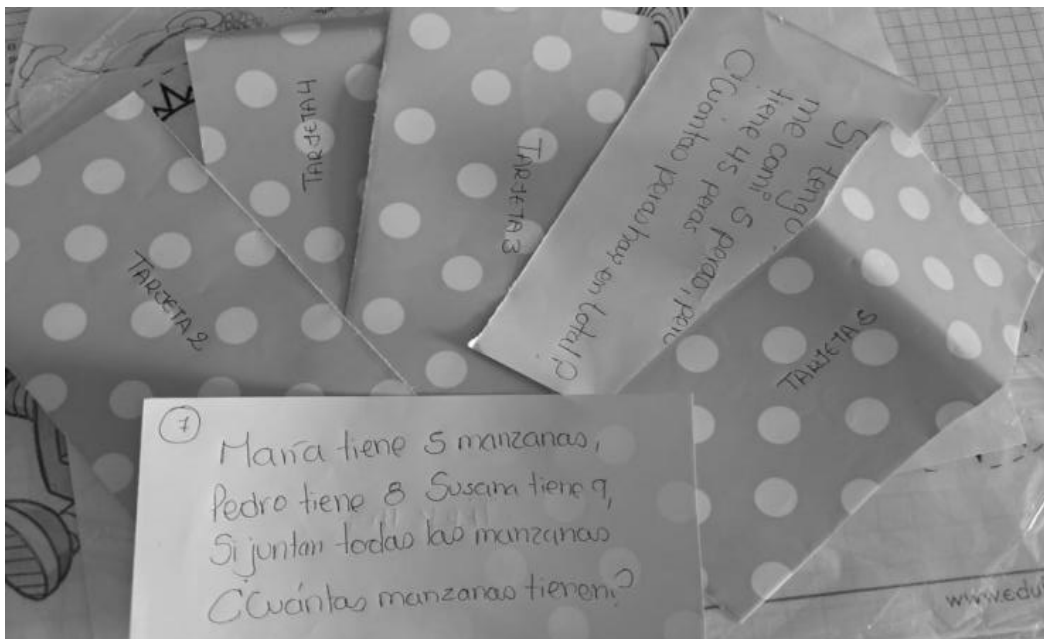 TARJETA 4
TARJETA 3
TARJETA 2
TARJETA 5
Si tengo
me comí 5 peras, pero
tiene 45 peras
¿Cuantas peras hay en total?
7
María tiene 5 manzanas,
Pedro tiene 8 Susana tiene 9,
Si juntan todas las manzanas
¿Cuántas manzanas tienen?
www.edu